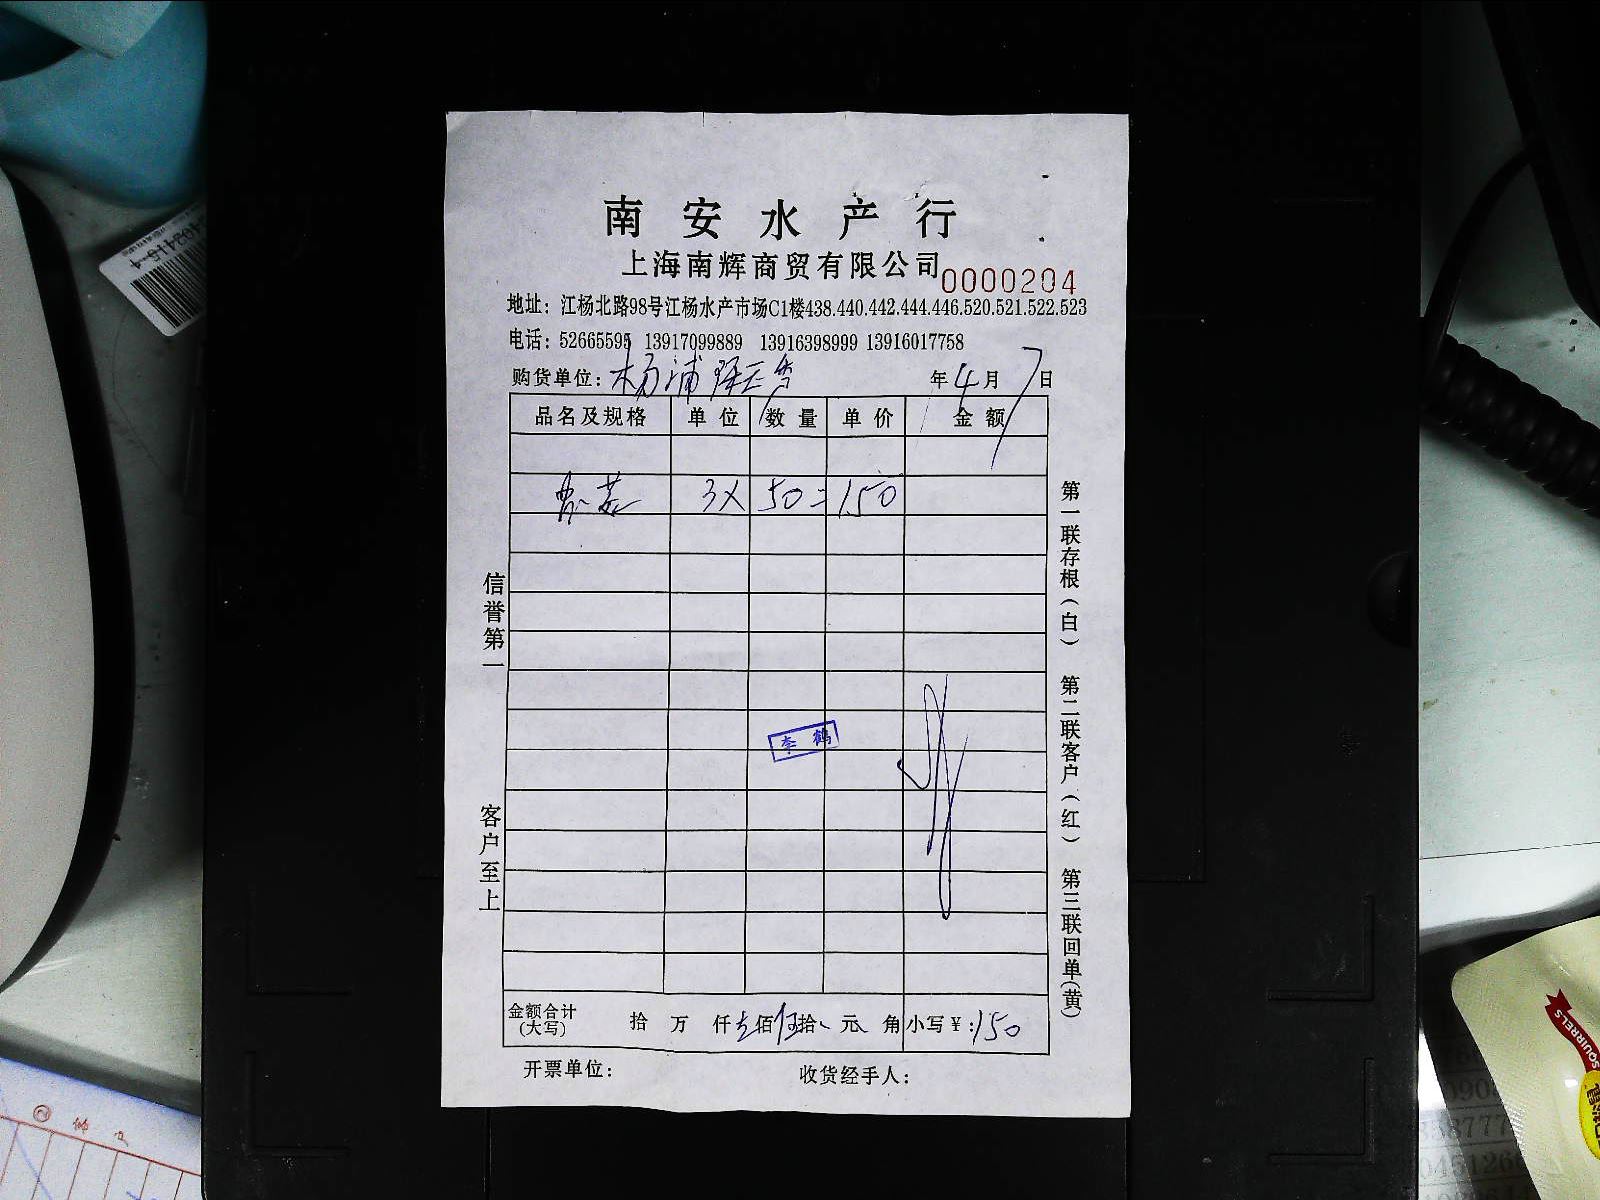 南安水产行
上海南辉商贸有限公司 0000204
地址：江杨北路98号江杨水产市场C1楼438.440.442.444.446.520.521.522.523
电话：52665595 13917099889 13916398999 13916017758
购货单位：杨浦 年4月7日
品名及规格 单位 数量 单价 金额
3X 50=150
李鹤
金额合计（大写） 拾 万 仟 佰 拾 元 角 小写¥：150
开票单位： 收货经手人：
信誉第一 客户至上
第一联存根（白） 第二联客户（红） 第三联回单（黄）
SQUIRRELS